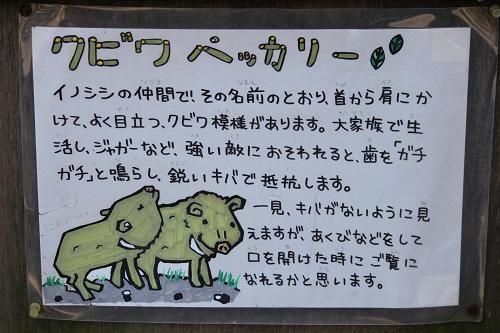 クビワ ペッカリー
イノシシの仲間で、その名前のとおり、首から肩にか
けて、よく目立つ、クビワ模様があります。大家族で生
活し、ジャガーなど、強い敵におそわれると、歯を「ガチ
ガチ」と鳴らし、鋭いキバで抵抗します。
一見、キバがないように見
えますが、あくびなどをして
口を開けた時にご覧に
なれるかと思います。